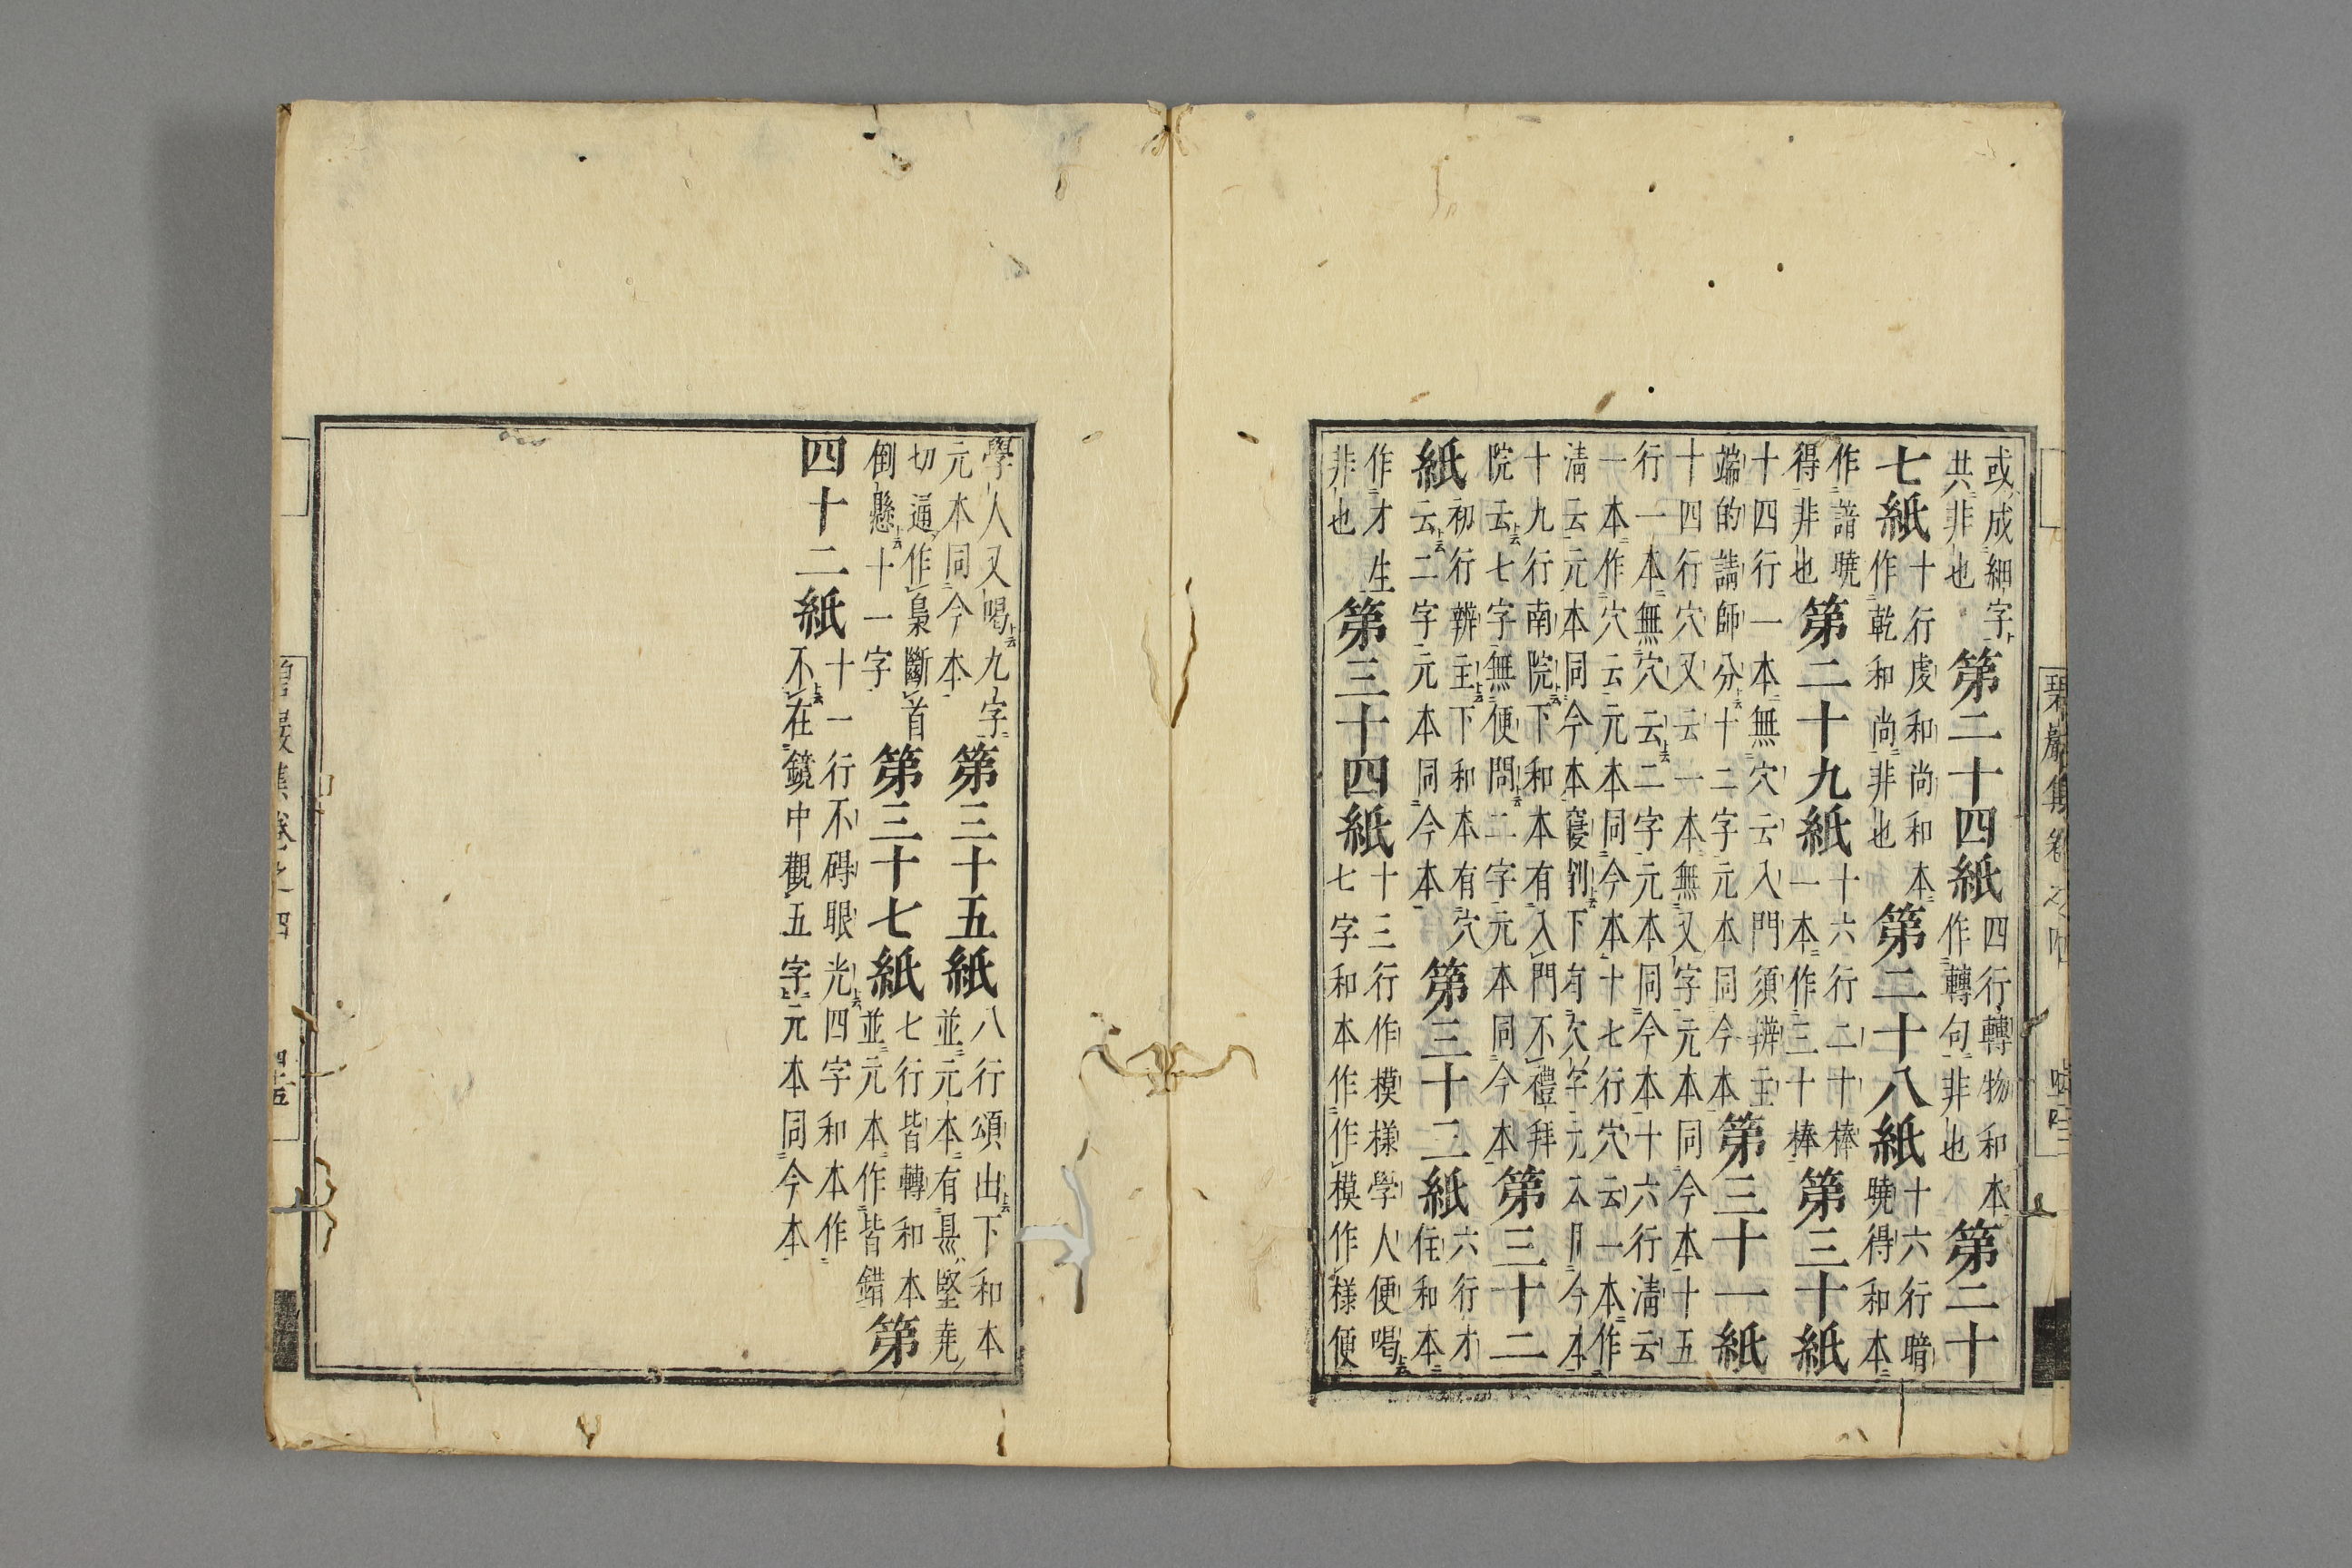 或成細字
共非也
第二十四紙
四行轉物和本
作轉句非也
第二十
七紙
十行虔和尚和本
作乾和尚非也
第二十八紙
十六行暗
曉得和本
作諳曉
得非也
第二十九紙
十六行二十棒
一本作三十棒
第三十紙
十四行一本無穴云入門須辨主
端的請師分十二字元本同今本
第三十一紙
十四行穴又云一本無又字元本同今本十五
行一本無穴云二字元本同今本十六行淸云
一本作穴云元本同今本十七行穴云一本作
淸云元本同今本 下有欠字元本同今本
十九行南院下和本有入門不禮拜
院云七字無便問二字元本同今本
第三十二
紙
初行辨主下和本有穴
云二字元本同今本
第三十三紙
六行才
住和本
作才生
非也
第三十四紙
十三行作模樣學人便喝
七字和本作作模作樣便
碧巖集卷之四
學人又喝九字
元本同今本
第三十五紙
八行頌出下和本
並元本有 堅
切逼作梟斷首
倒懸十一字
第三十七紙
七行皆轉和本
並元本作皆錯
第
四十二紙
十一行不碍眼光四字和本作
不在鏡中觀五字元本同今本
碧巖集卷之四